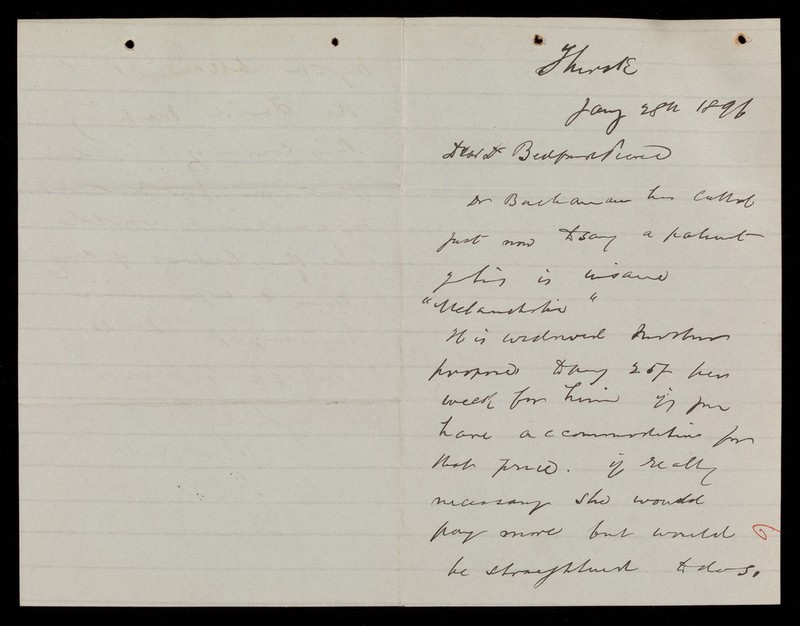 Thirsk
Jany 28th 1896
Dear Dr Bedford Pierce
Dr Buchanan has called
just now to say a patient
of his is insane
"Melancholia"
His widowed Mother
proposes to pay 25/- per
week for him if you
have accommodation for
that price. if really
necessary she would
pay more but would
be straightened to do so.